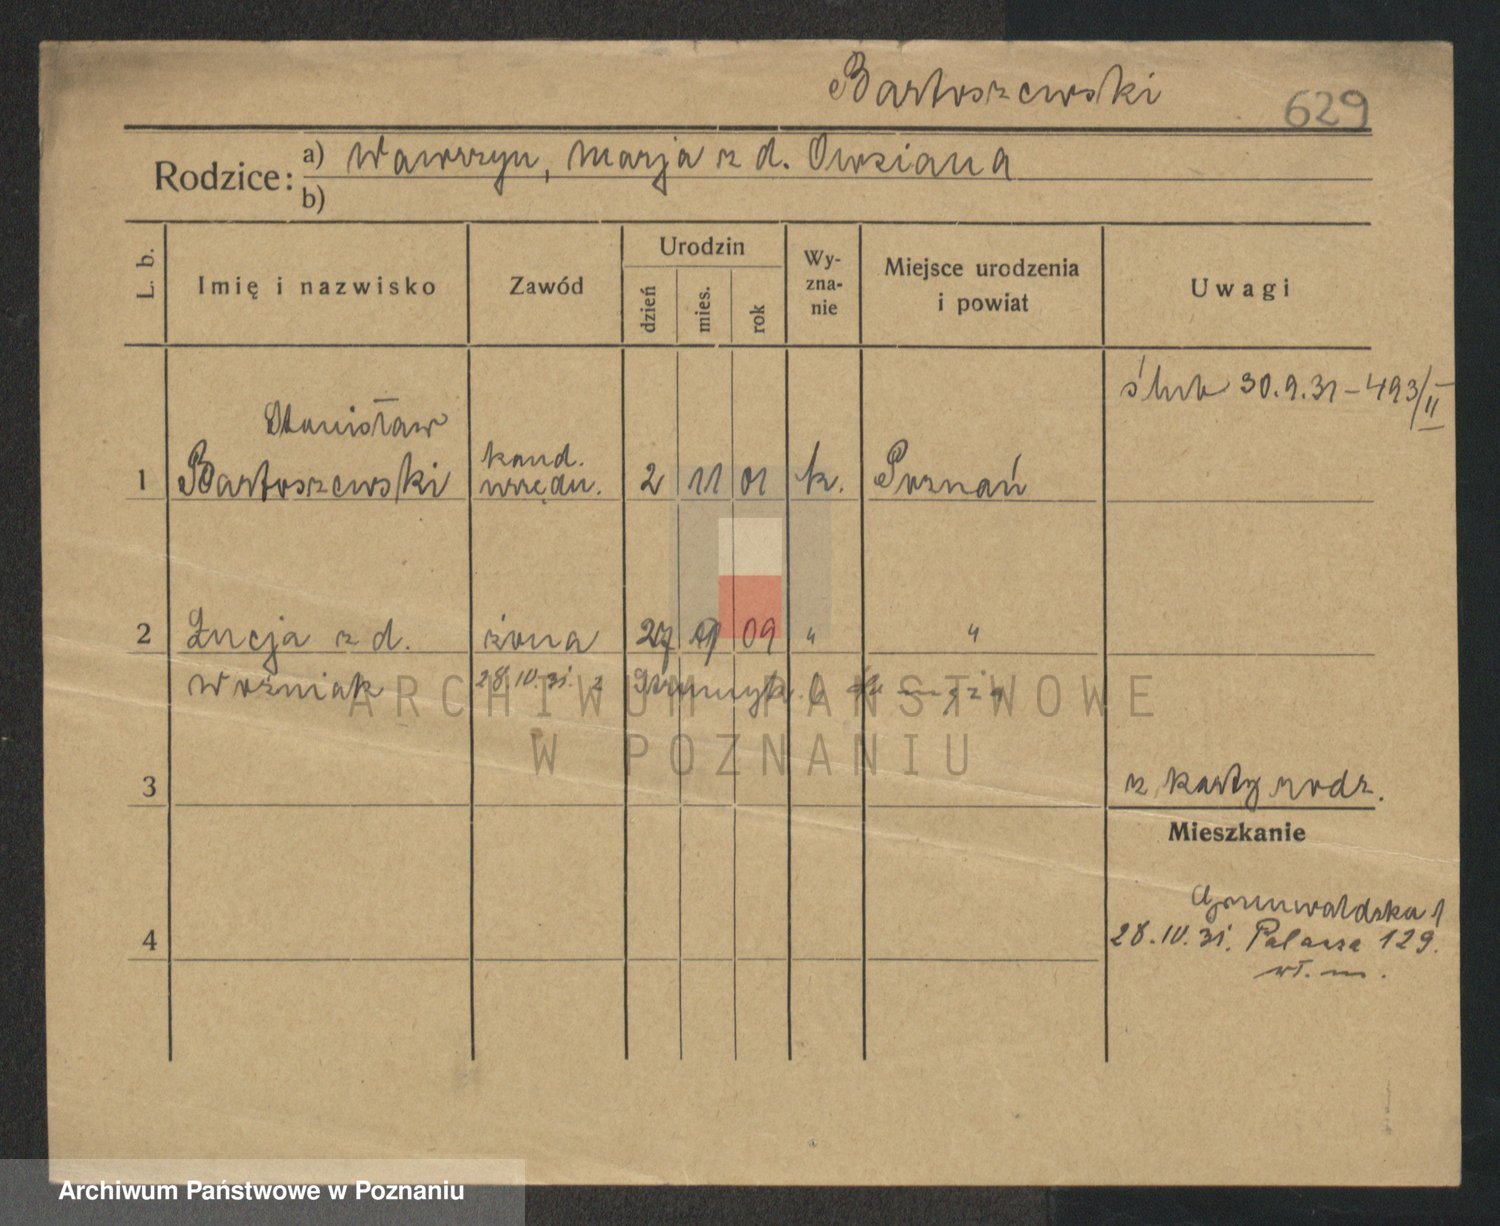 Bartoszewski
629
Rodzice:
a) Wawrzyn, Marja z d. Owsiana
b)
L. b.
Imię i nazwisko
Zawód
Urodzin
dzień
mies.
rok
Wy-
zna-
nie
Miejsce urodzenia
i powiat
Uwagi
ślub 30.9.31 – 493/II
Stanisław
1 Bartoszewski kand. urzędn. 2 11 01 k. Poznań
2 Łucja z d. żona 27 09 " "
Woźniak 28.IV.31. z
ARCHIWUM PAŃSTWOWE
W POZNANIU
3
z karty rodz.
Mieszkanie
Grunwaldzka 1
4
28.IV.31. Palacza 129.
wł. m.
Archiwum Państwowe w Poznaniu